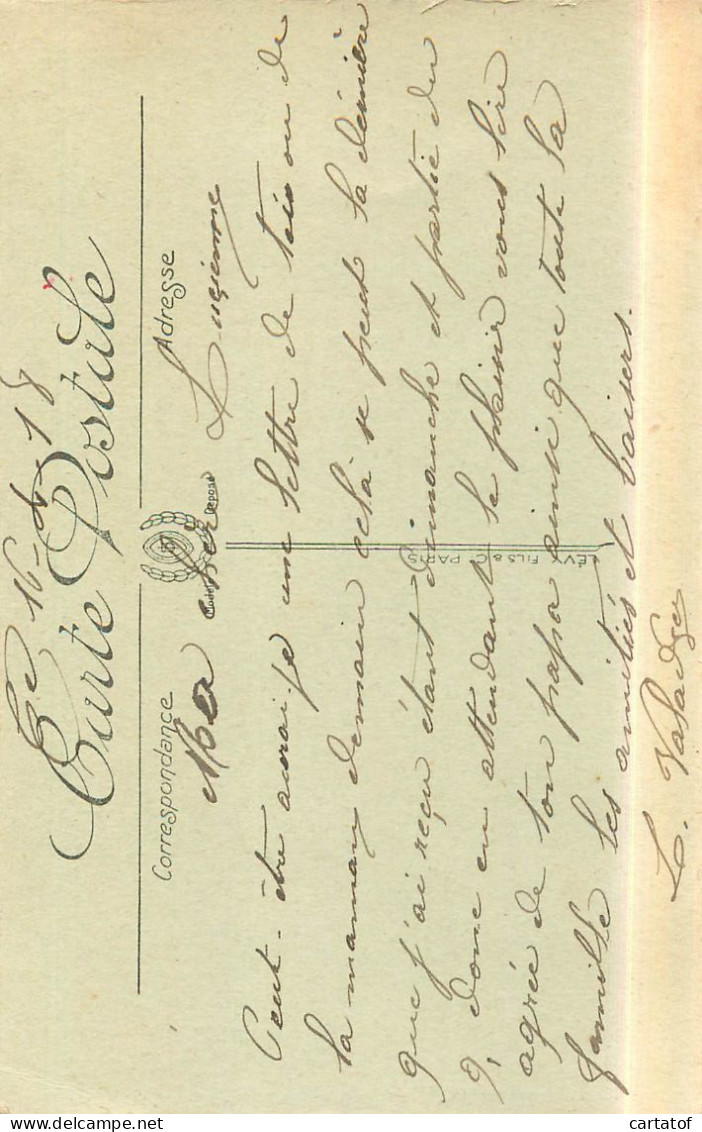 Ce 16-4-18
Carte Postale
Correspondance
Adresse
Modèle Déposé
LÉVY FILS & Cie PARIS
Ma chère Lucienne
Peut-être aurai-je une lettre de toi ou de
ta maman demain celà se peut la dernière
que j'ai reçu étant dimanche et partie du
9, donc en attendant le plaisir vous lire
agrée de ton papa ainsi que toute la
famille les amitiés et baisers.
L.
cartatof